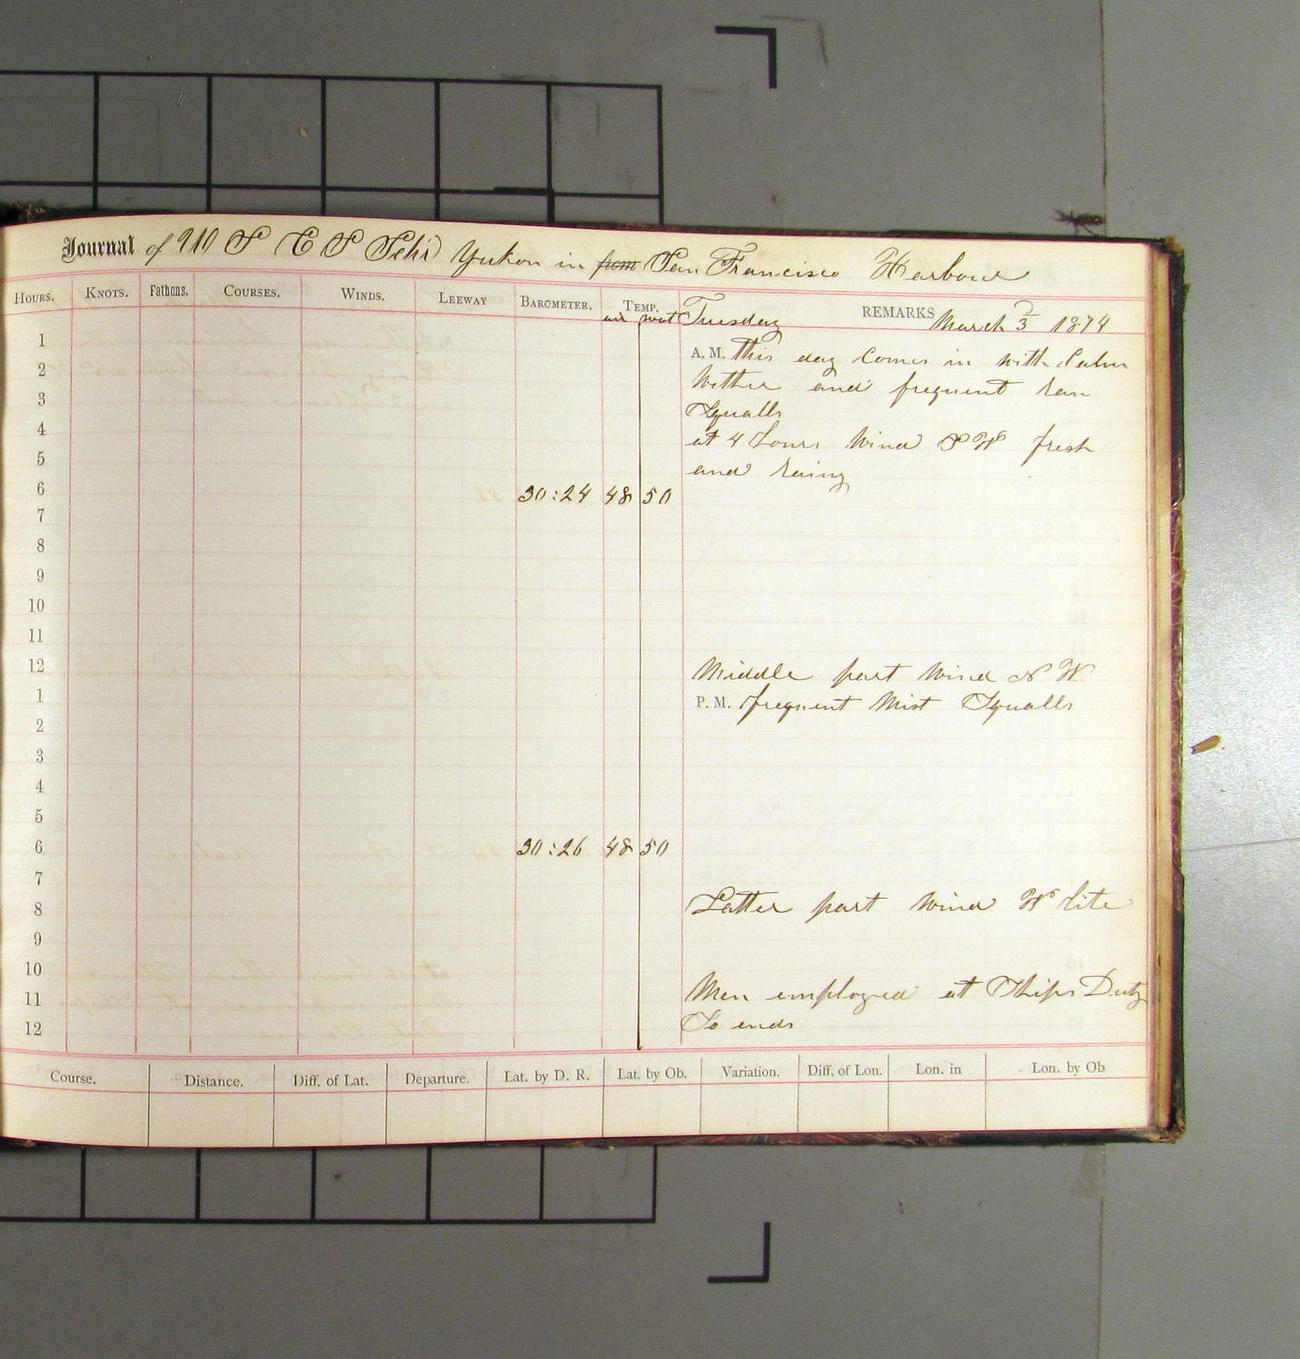 Journal of U S C S Schr Yukon in from San Francisco Harbour
HOURS. KNOTS. Fathoms. COURSES. WINDS. LEEWAY BAROMETER. TEMP. REMARKS
air wat Tuesday March 3 1874
1
A. M. This day Comes in with Calm
2 Wether and frequent Ran
3 Squalls
4 at 4 hours Wind S W fresh
5 and Rainy
6 30:24 48 50
7
8
9
10
11
12 Middle part Wind N W
1 P. M. frequent Mist Squalls
2
3
4
5
6 30:26 48 50
7
8 Latter part Wind W lite
9
10
11 Men employed at Ships Duty
12 So ends
Course. Distance. Diff. of Lat. Departure. Lat. by D. R. Lat. by Ob. Variation. Diff. of Lon. Lon. in Lon. by Ob